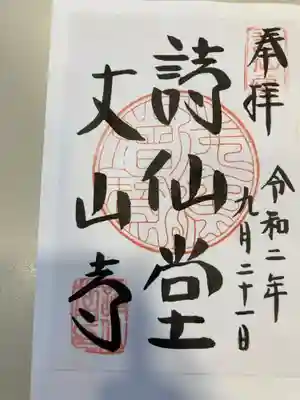 奉拝
令和二年
九月二十一日
詩仙堂
丈山寺